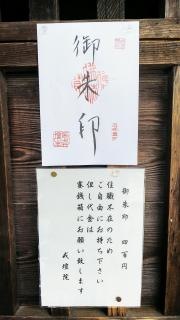 御朱印
御朱印 四百円
住職不在のため
ご自由にお持ち下さい
但し代金は
賽銭箱にお願い致します
戒壇院